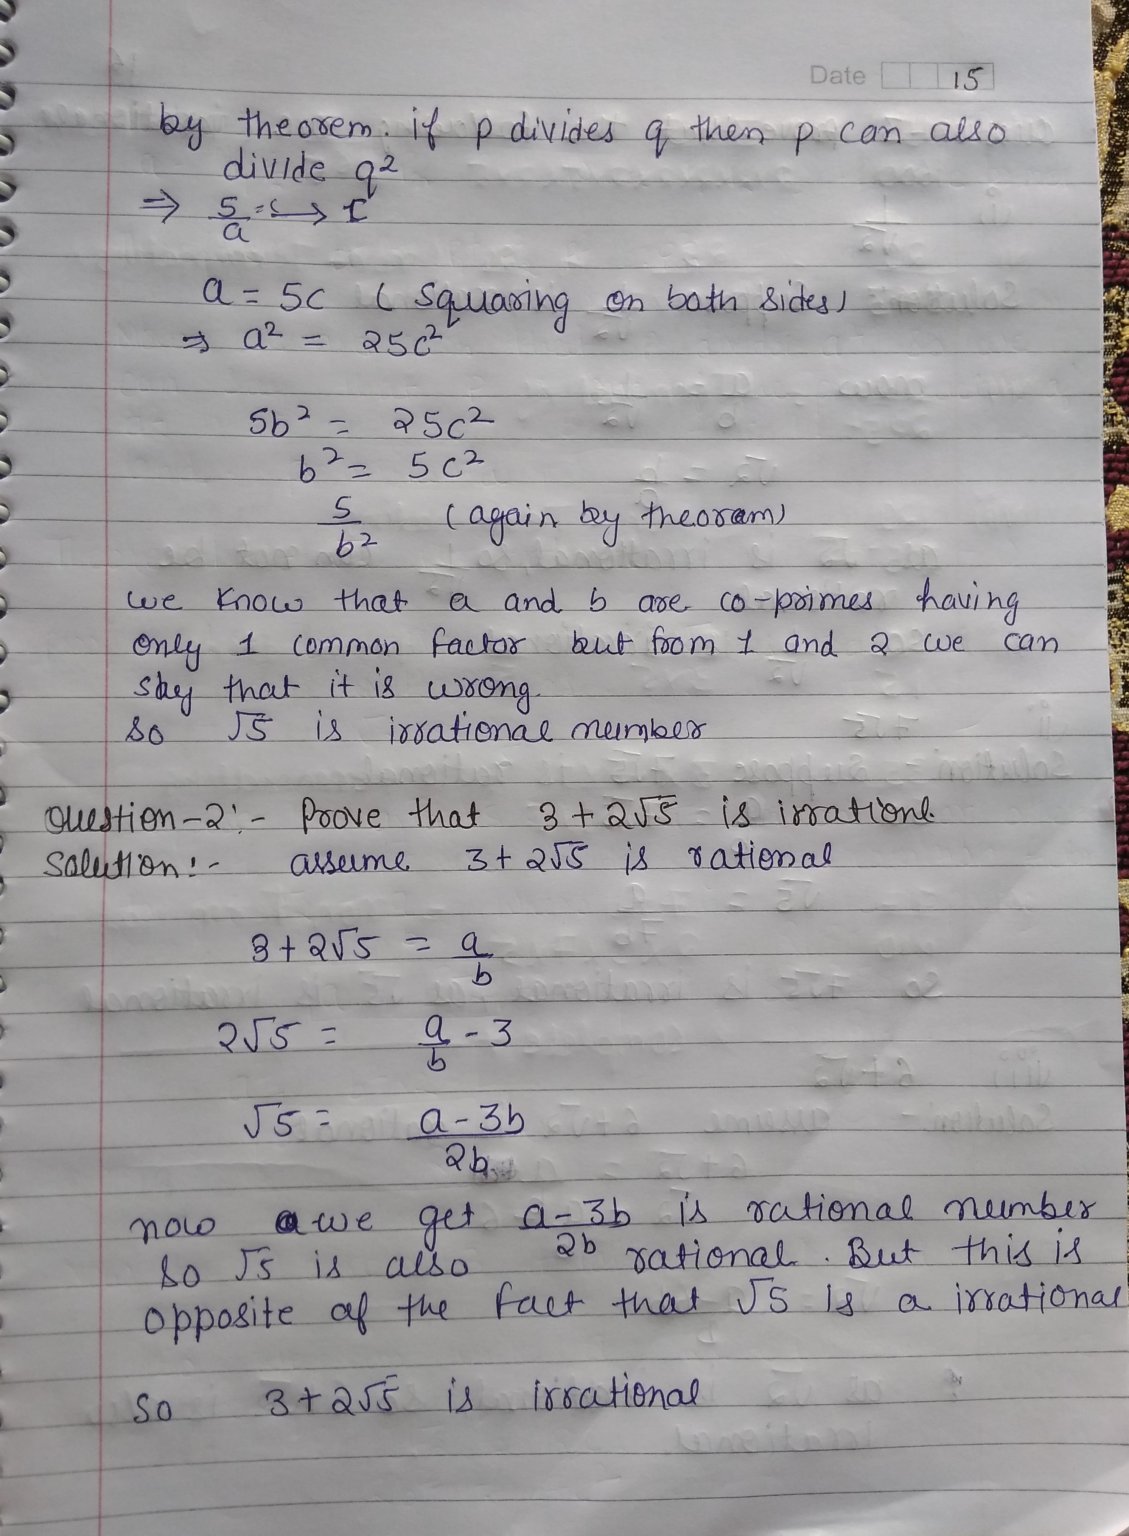 Date 15
by theorem. if p divides q then p can also
divide q²
⇒ 5/a
a = 5c ( squaring on both sides)
⇒ a² = 25c²
5b² = 25c²
b² = 5c²
5/b² (again by theoram)
we know that a and b are co-primes having
only 1 common factor but from 1 and 2 we can
say that it is wrong
so √5 is irrational number
Question-2:- Prove that 3+2√5 is irrationl.
Solution:- assume 3+2√5 is rational
3+2√5 = a/b
2√5 = a/b - 3
√5 = a-3b/2b
now we get a-3b/2b is rational number
so √5 is also rational. But this is
opposite of the fact that √5 is a irrational
so 3+2√5 is irrational